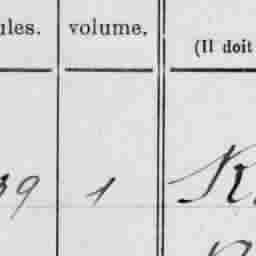 ules. volume. (Il doit
39 1 K